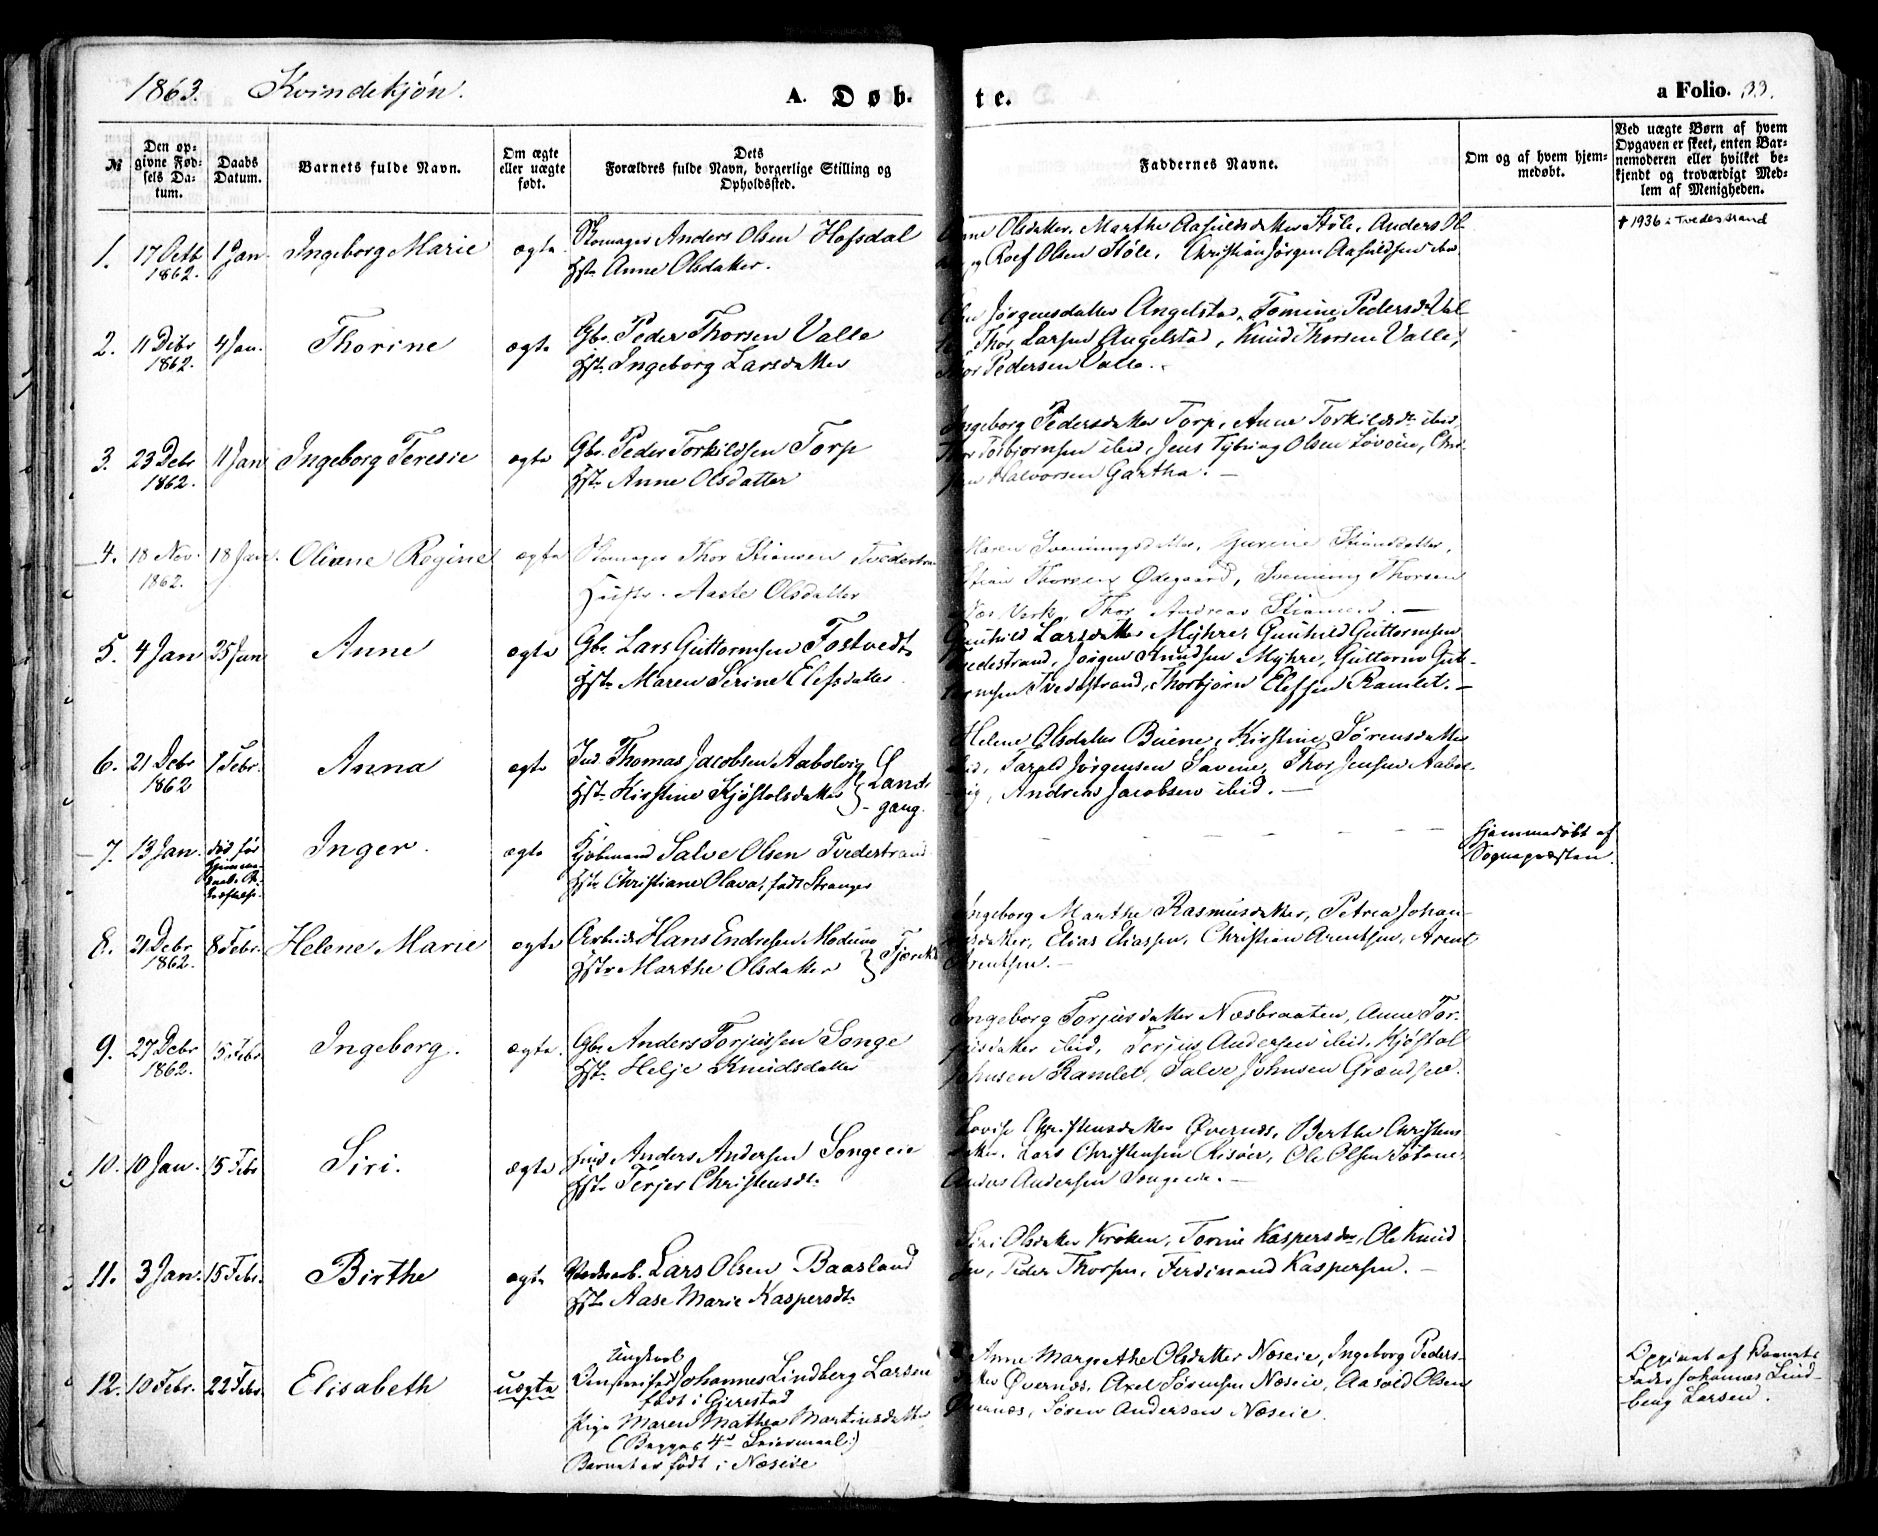 1863. Kvindekjön.
A. Døb-
te.
a Folio. 33.
№
Den op-
givne Fød-
sels Da-
tum.
Daabs
Datum.
Barnets fulde Navn.
Om ægte
eller uægte
født.
Dets
Forældres fulde Navn, borgerlige Stilling og
Opholdssted.
Faddernes Navne.
Om og af hvem hjem-
medøbt.
Ved uægte Børn af hvem
Opgaven er skeet, enten Bar-
nemoderen eller hvilket be-
kjendt og troværdigt Med-
lem af Menigheden.
1. 17 Octb 1 Jan Ingeborg Marie ægte
1862.
Skomager Anders Olsen Hofsdal
Hstr Anne Olsdatter.
Olsdatter, Marthe Aasuldsdatter Støle, Anders Ol-
Roef Olsen Støle, Christian Jörgen Aasuldsen
✝ 1936 i Tvedestrand
2. 11 Debr 4 Jan. Thorine ægte
1862.
Gbr. Peder Thorsen Valle
Hstr. Ingeborg Larsdatter
Jörgensdatter Angelstad, Tomine Pedersdr Val-
Thor Larsen Angelstad, Knud Thorsen Valle,
Pedersen Valle.
3. 23 Debr 11 Jan Ingeborg Teresie ægte
1862.
Gbr. Peder Torkildsen Torp
Hstr Anne Olsdatter
Ingeborg Pedersdatter Torp, Anne Torkildsdr ibid,
Torbjørnsen ibid, Jens Tybring Olsen Lovöen, Chri-
Halvorsen Gartha. —
4. 18 Nov. 18 Jan. Oliane Regine ægte
1862.
Skomager Thor Stiansen Tvedestran
Hustr. Aaste Olsdatter
Maren Sveningsdatter, Gurine Stiansdatter,
Stian Thorsen Ødegaard, Svenning Thorsen
Næs Værk, Thor Andreas Stiansen. —
5. 4 Jan 25 Jan Anne ægte
Gbr. Lars Guttormsen Fostvedt
Hstr Maren Serine Elefsdatter
Gunhild Larsdatter Myhre, Gunhild Guttormsen
Tvedestrand, Jörgen Knudsen Myhre, Guttorm Gut-
tormsen Tvedestrand, Thorbjörn Elefsen Ramlet. —
6. 21 Debr 1 Febr. Anna ægte
1862
Ind. Thomas Jacobsen Aabolvig
Hstr. Kirstine Kjöstolsdatter
Lands-
gang.
Helene Olsdatter Buene, Kirstine Sørensdatter
ibid, Tarald Jörgensen Savene, Thor Jensen Aabol-
vig, Andreas Jacobsen ibid. —
7. 13 Jan. død før Inger. ægte
Kjøbmand Salve Olsen Tvedestrand
Hstr Christiane Olava, født Stranger
Hjemmedøbt af
Sognepræsten.
8. 21 Debr 8 Febr. Helene Marie ægte
1862.
Arbeidr Hans Endresen Modum
Hstr Marthe Olsdatter
Ingeborg Marthe Rasmusdatter, Petrea Johan-
datter, Elias Eliassen, Christian Arentsen, Arent
Arentsen. —
9. 27 Debr 15 Febr Ingeborg. ægte.
1862.
Gbr Anders Torjussen Songe
Hstr. Helje Knudsdatter
Ingeborg Torjusdatter Næsbraaten, Anne Tor-
jusdatter ibid, Torjus Andersen ibid. Kjöstol
Johnsen Ramlet, Salve Johnsen Grændsen.
10. 10 Jan. 15 Febr Siri. ægte
Ind Anders Andersen Songeeie
Hstr Terjer Christensdr.
Lovise Christensdatter Øvernæs, Berthe Christens-
datter. Lars Christensen Risöer, Ole Olsen
Anders Andersen Songeeie. —
11. 3 Jan. 15 Febr. Birthe ægte
Lars Olsen Baasland
Hstr Aase Marie Kaspersdr.
Siri Olsdatter Kroken, Torine Kaspersdr, Ole Knud-
sen, Peder Thorsen, Ferdinand Kaspersen. —
12. 10 Febr. 22 Febr Elisabeth uægte
Ungkarl
Johannes Lindberg Larsen
født i Gjerestad
Pige Maren Mathea Martinsdatter
(Begges 4de Leiermaal:)
Barnet er født i Næseie
Anne Margrethe Olsdatter Næseie, Ingeborg Peders-
Øvernæs, Axel Sörensen Næseie, Aasold Olsen
Øvernæs, Sören Andersen Næseie.
Opgivet af Barnets
Fader Johannes Lind-
berg Larsen.